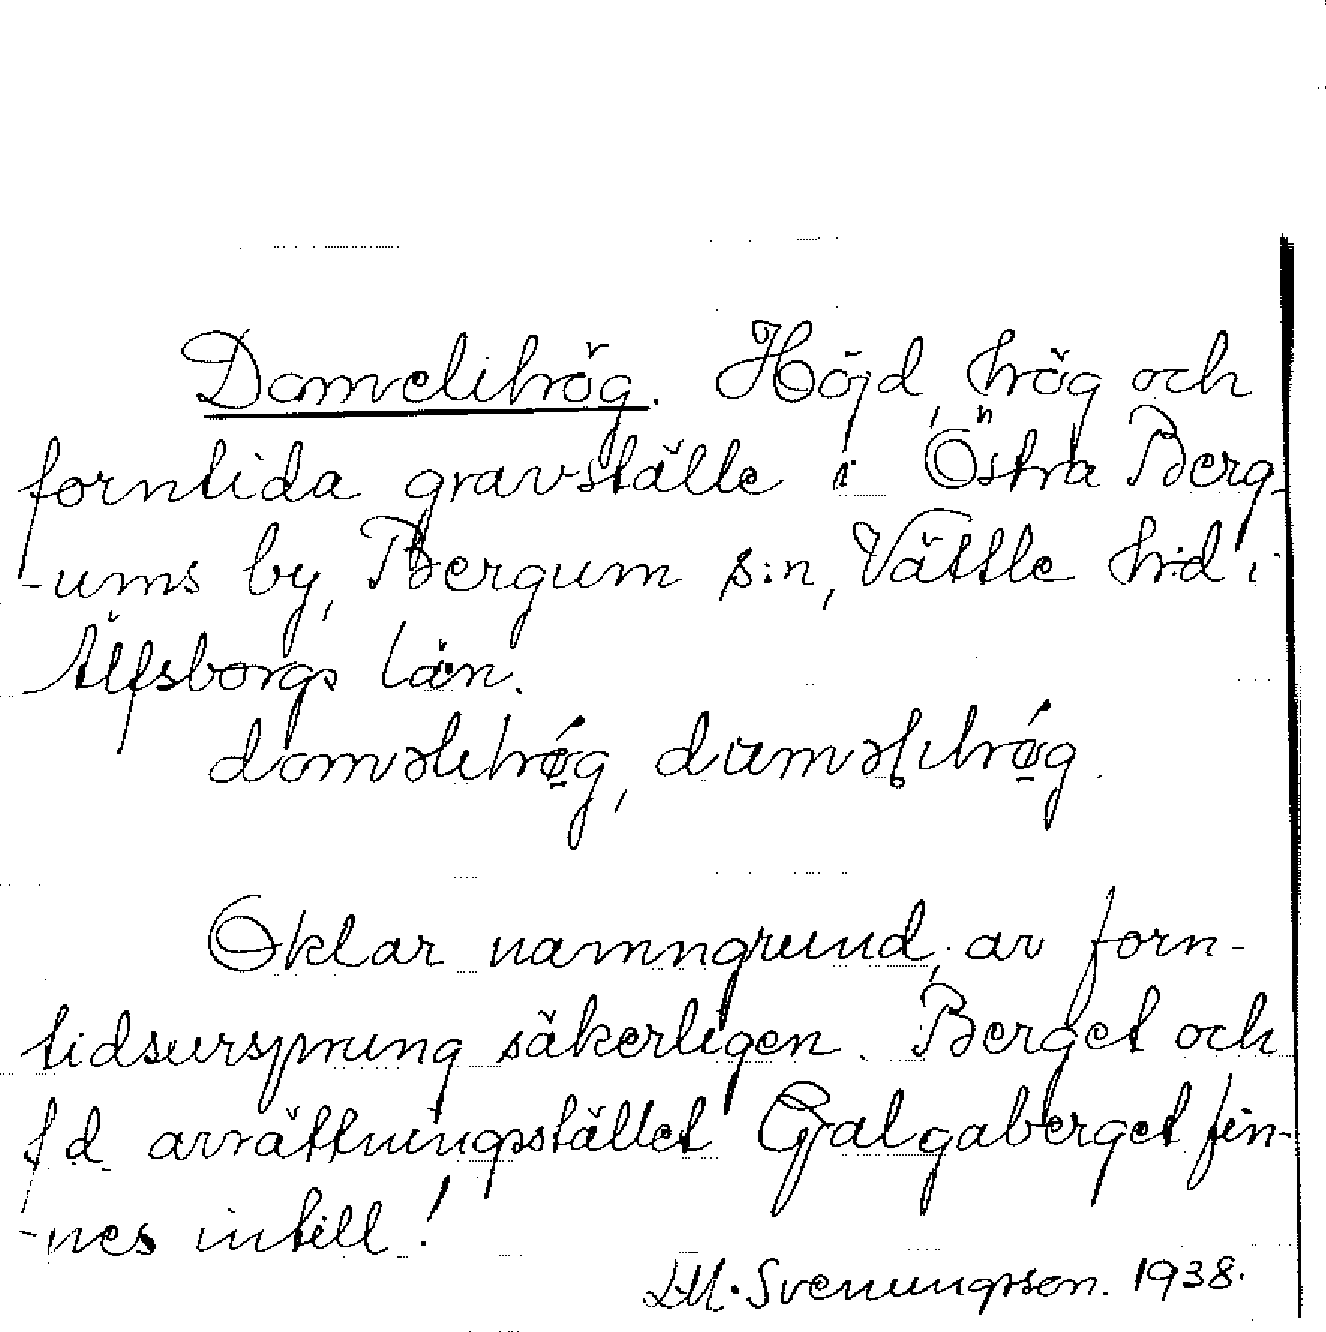 Domelihög. Höjd, hög och
forntida gravställe i Östra Berg-
-ums by, Bergum s:n, Vättle hd i
Älfsborgs län.
Oklar namngrund, av forn-
tidsursprung säkerligen. Berget och
f d avrättningsstället Galgaberget fin-
-nes intill!
Svenungsson. 1938.